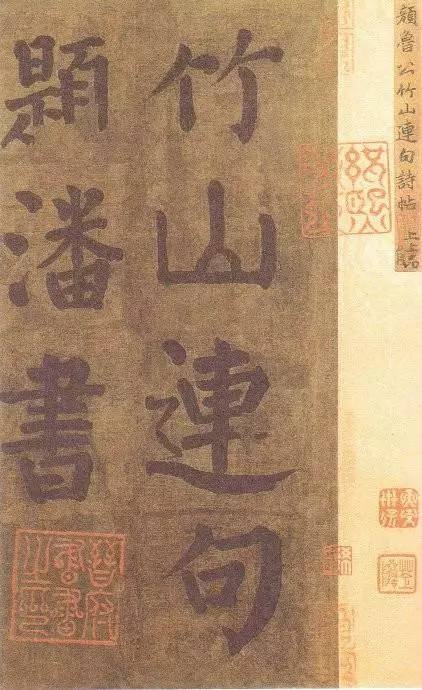 顔魯公竹山連句詩帖 上上品
竹山連句
題潘書